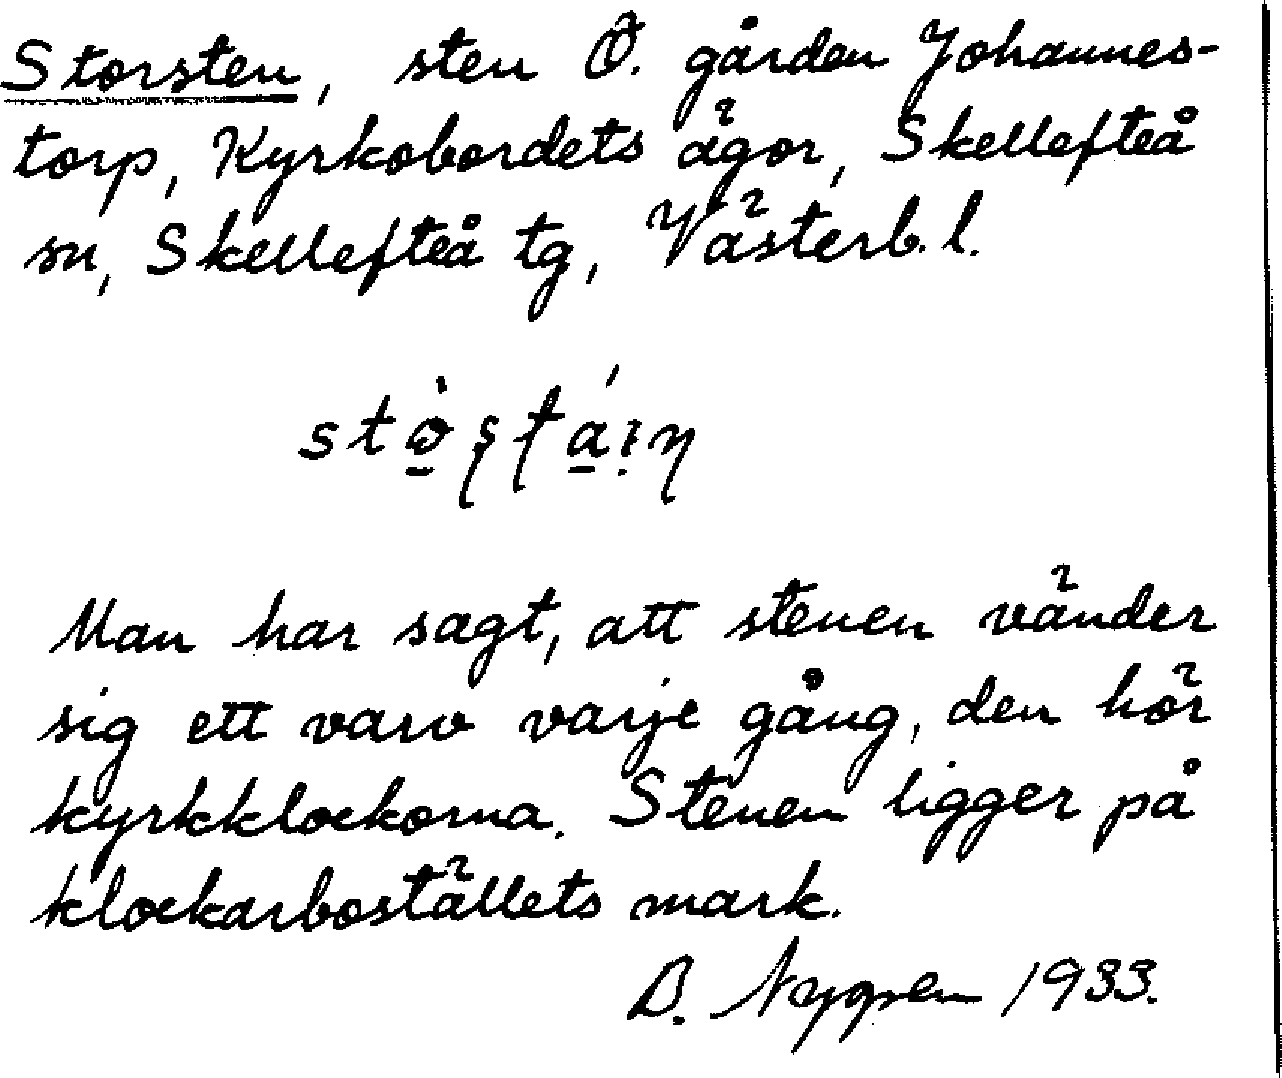 Storsten, sten Ö. gården Johannes-
torp, Kyrkobordets ägor, Skellefteå
sn, Skellefteå tg, Västerb. l.
Man har sagt, att stenen vänder
sig ett varv varje gång, den hör
kyrkklockorna. Stenen ligger på
klockarboställets mark.
B. Nygren 1933.